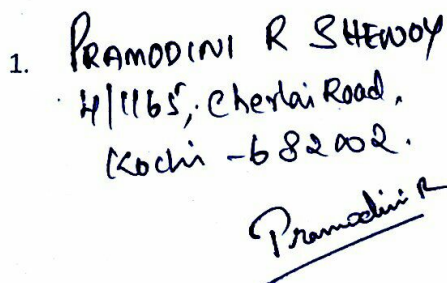 1. PRAMODINI R SHENOY
4/1165, Cherlai Road,
Kochi - 682002.
Pramodini R